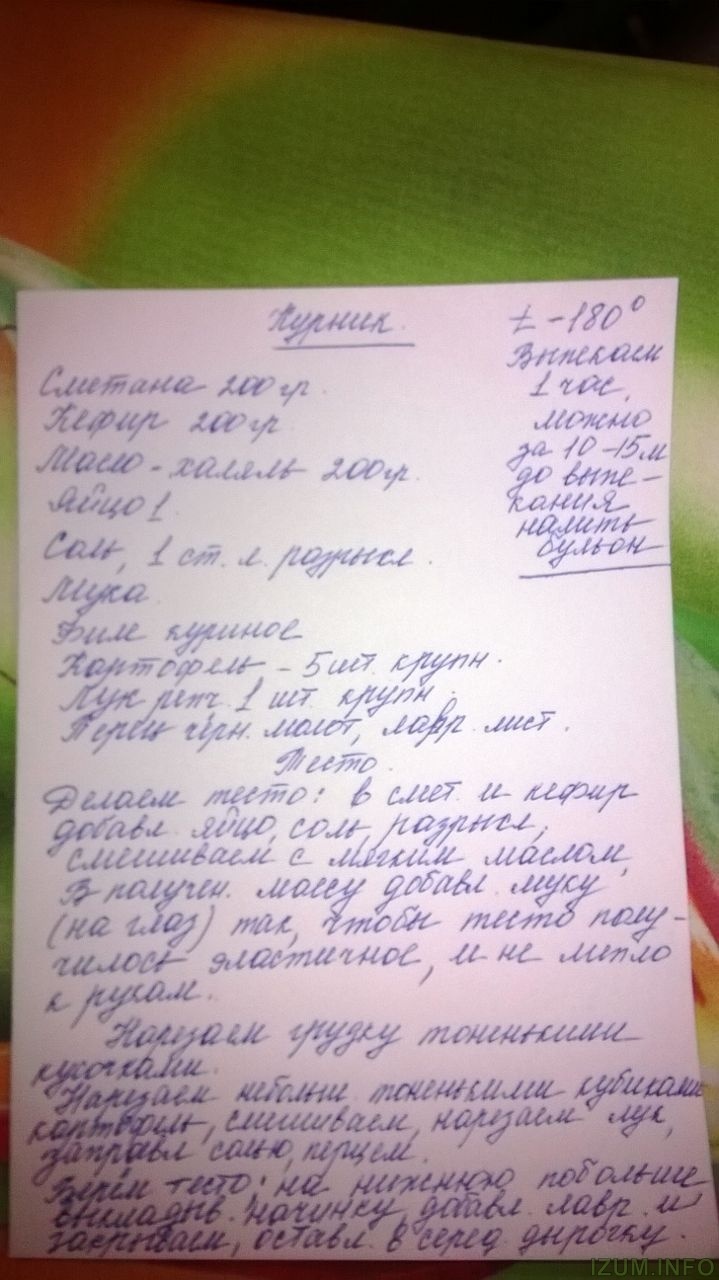 Курник.
t - 180°
Выпекаем
1 час,
можно
за 10-15м
до выпе-
кания
налить
бульон
Сметана 200гр.
Кефир 200гр.
Масло-халяль 200гр.
Яйцо 1.
Соль, 1 ст. л. разрыхл.
Мука.
Филе куриное
Картофель - 5 шт. крупн.
Лук репч. 1 шт. крупн.
Перец чёрн. молот, лавр. лист.
Тесто.
Делаем тесто: в смет. и кефир
добавл. яйцо, соль, разрыхл,
смешиваем с мягким маслом,
В получен. массу добавл. муку
(на глаз) так, чтобы тесто полу-
чилось эластичное, и не липло
к рукам.
Нарезаем грудку тоненькими
кусочками.
Нарезаем небольш. тоненькими кубиками
картофель, смешиваем, нарезаем лук,
заправл солью, перцем.
Берём тесто: на нижнюю побольше
выкладыв. начинку, добавл. лавр. и
закрываем, оставл. в серед. дырочку.
IZUM.INFO